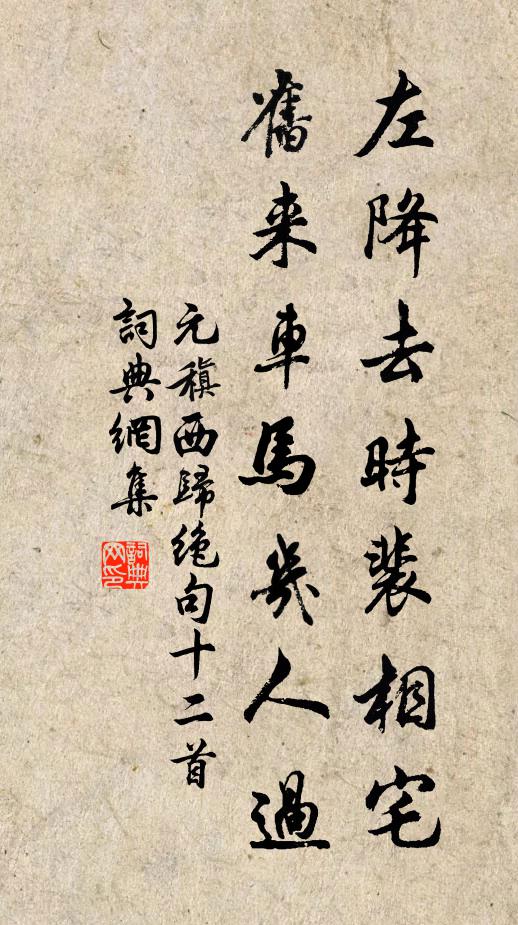 左降去時裴相宅
舊来車馬幾人過
元稹西歸絶句十二首
詞典網集
詞典
网印